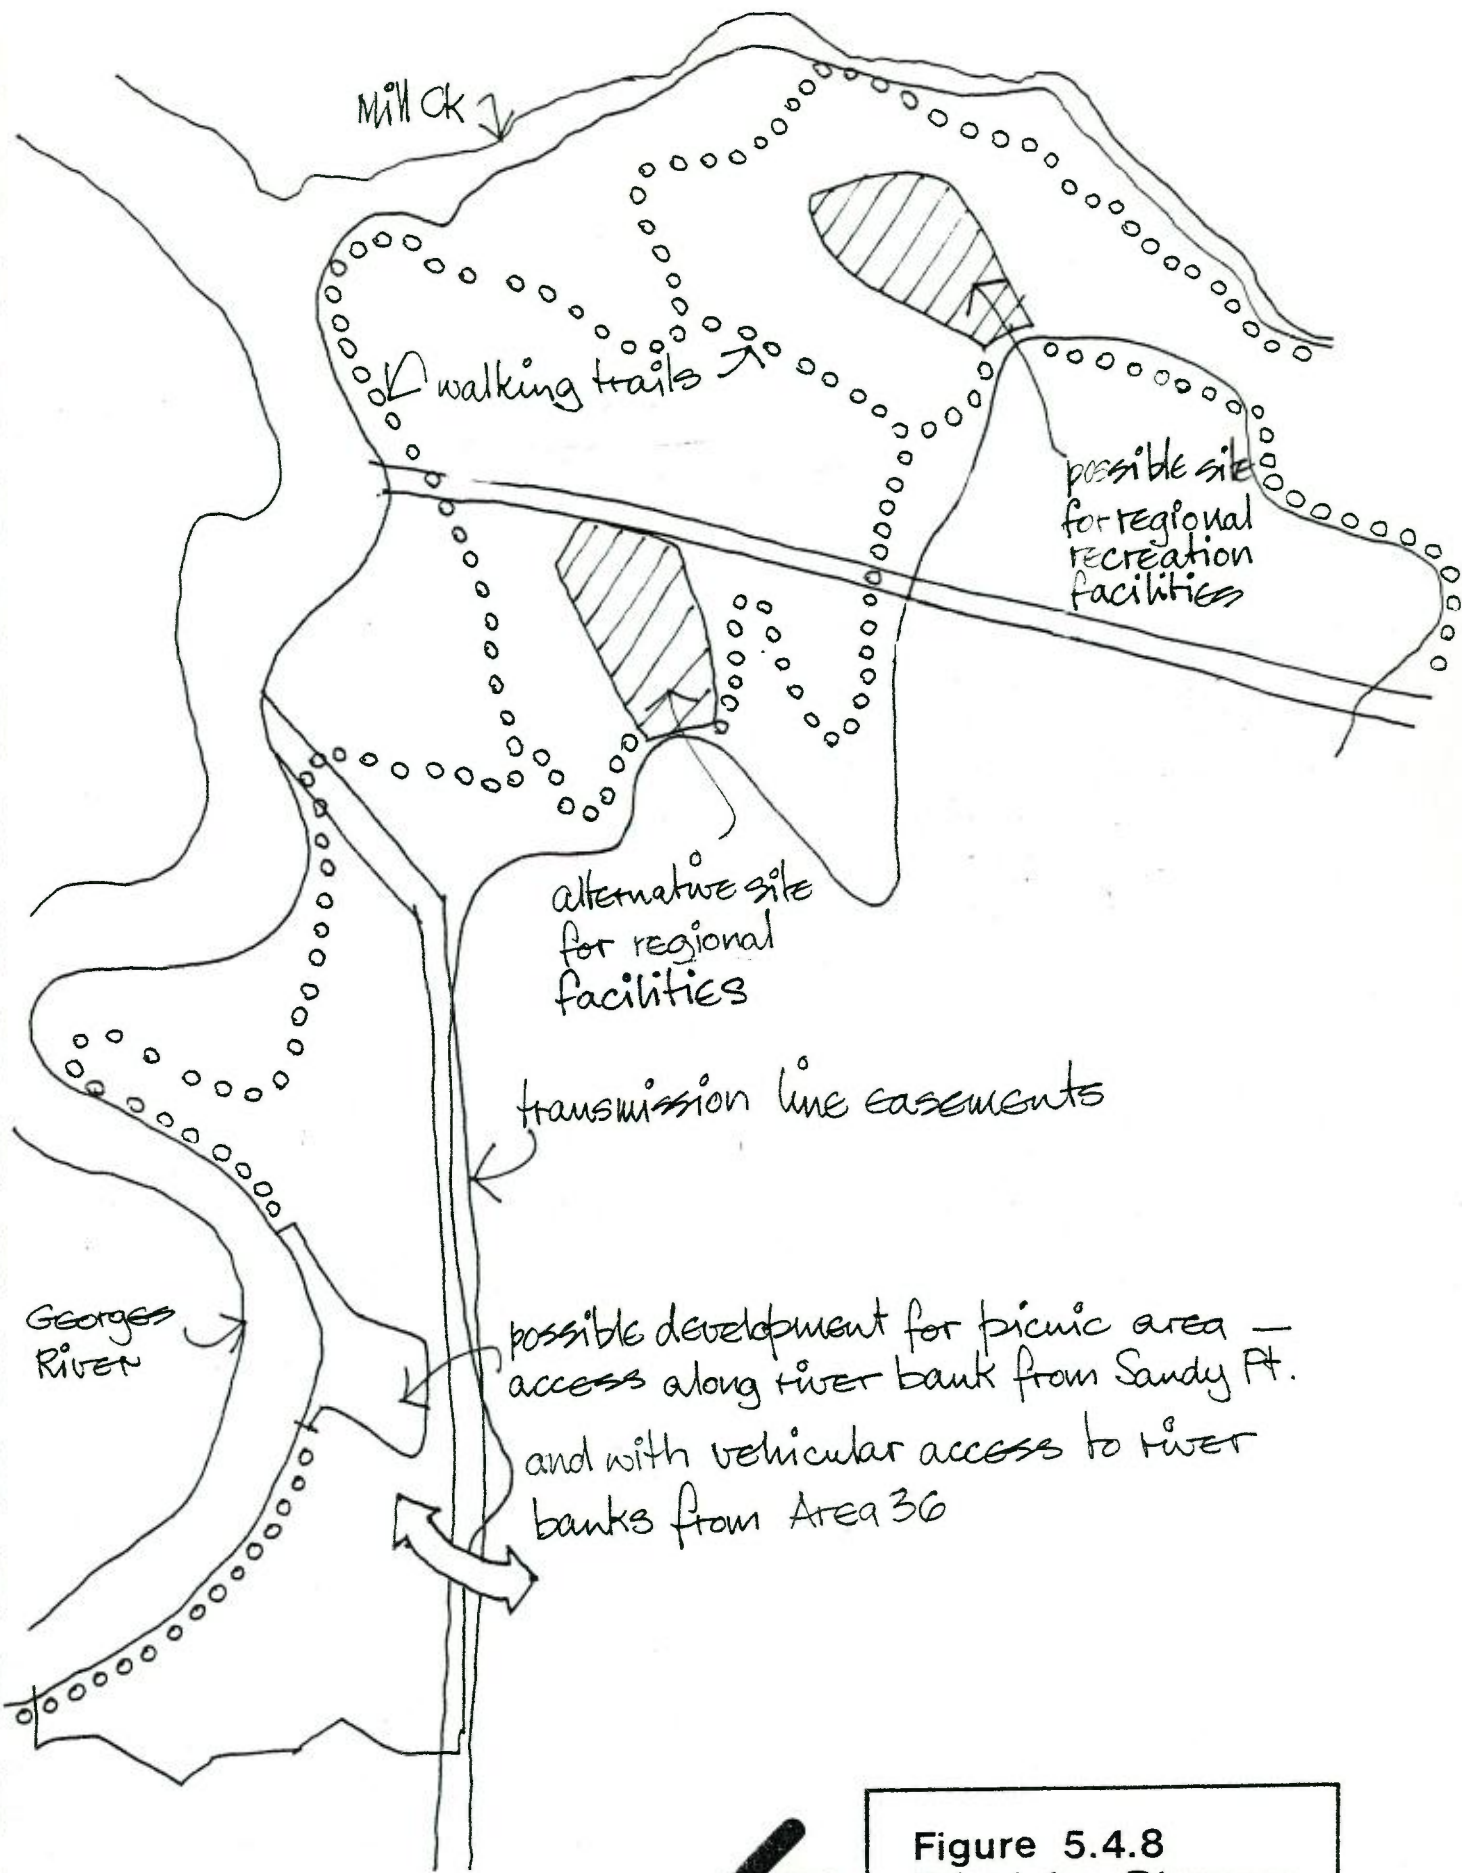 Mill Ck
walking trails
possible site
for regional
recreation
facilities
alternative site
for regional
facilities
transmission line easements
Georges
River
possible development for picnic area —
access along river bank from Sandy Pt.
and with vehicular access to river
banks from Area 36
Figure 5.4.8